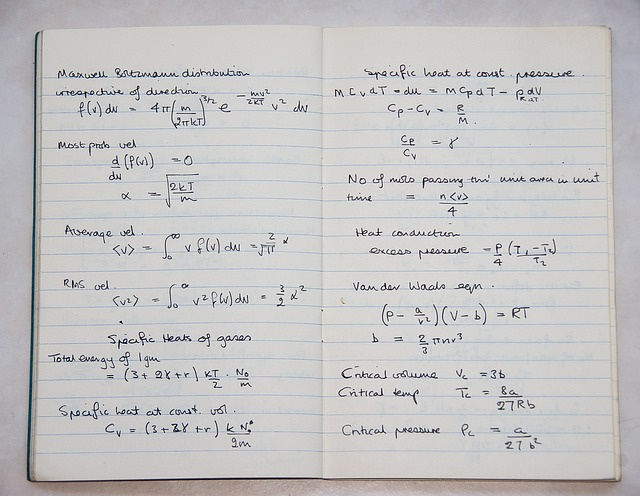 Maxwell Boltzmann distribution
irrespective of direction
f(v) dv = 4π (m/2πkT)^3/2 e^-mv²/2kT v² dv
Most prob vel
d/dv (f(v)) = 0
α = √(2kT/m)
Average vel.
<v> = ∫₀^∞ v f(v) dv = 2/√π α
RMS vel.
<v²> = ∫₀^∞ v² f(v) dv = 3/2 α²
Specific Heats of gases
Total energy of 1gm
= (3 + 2γ + r) kT/2 · N₀/m
Specific heat at const. vol.
Cv = (3 + 2γ + r) k N₀/2m
Specific heat at const. pressure.
M Cv dT = du = M Cp dT − p dV
R dT
Cp − Cv = R/M.
Cp/Cv = γ
No of mols passing thro' unit area in unit
time = n<v>/4
Heat conduction
excess pressure = P/4 (T₁ − T₂)/T₂
Van der Waals eqn.
(P − a/v²)(V − b) = RT
b = 2/3 πnr³
Critical volume Vc = 3b
Critical temp Tc = 8a/27Rb
Critical pressure Pc = a/27b²